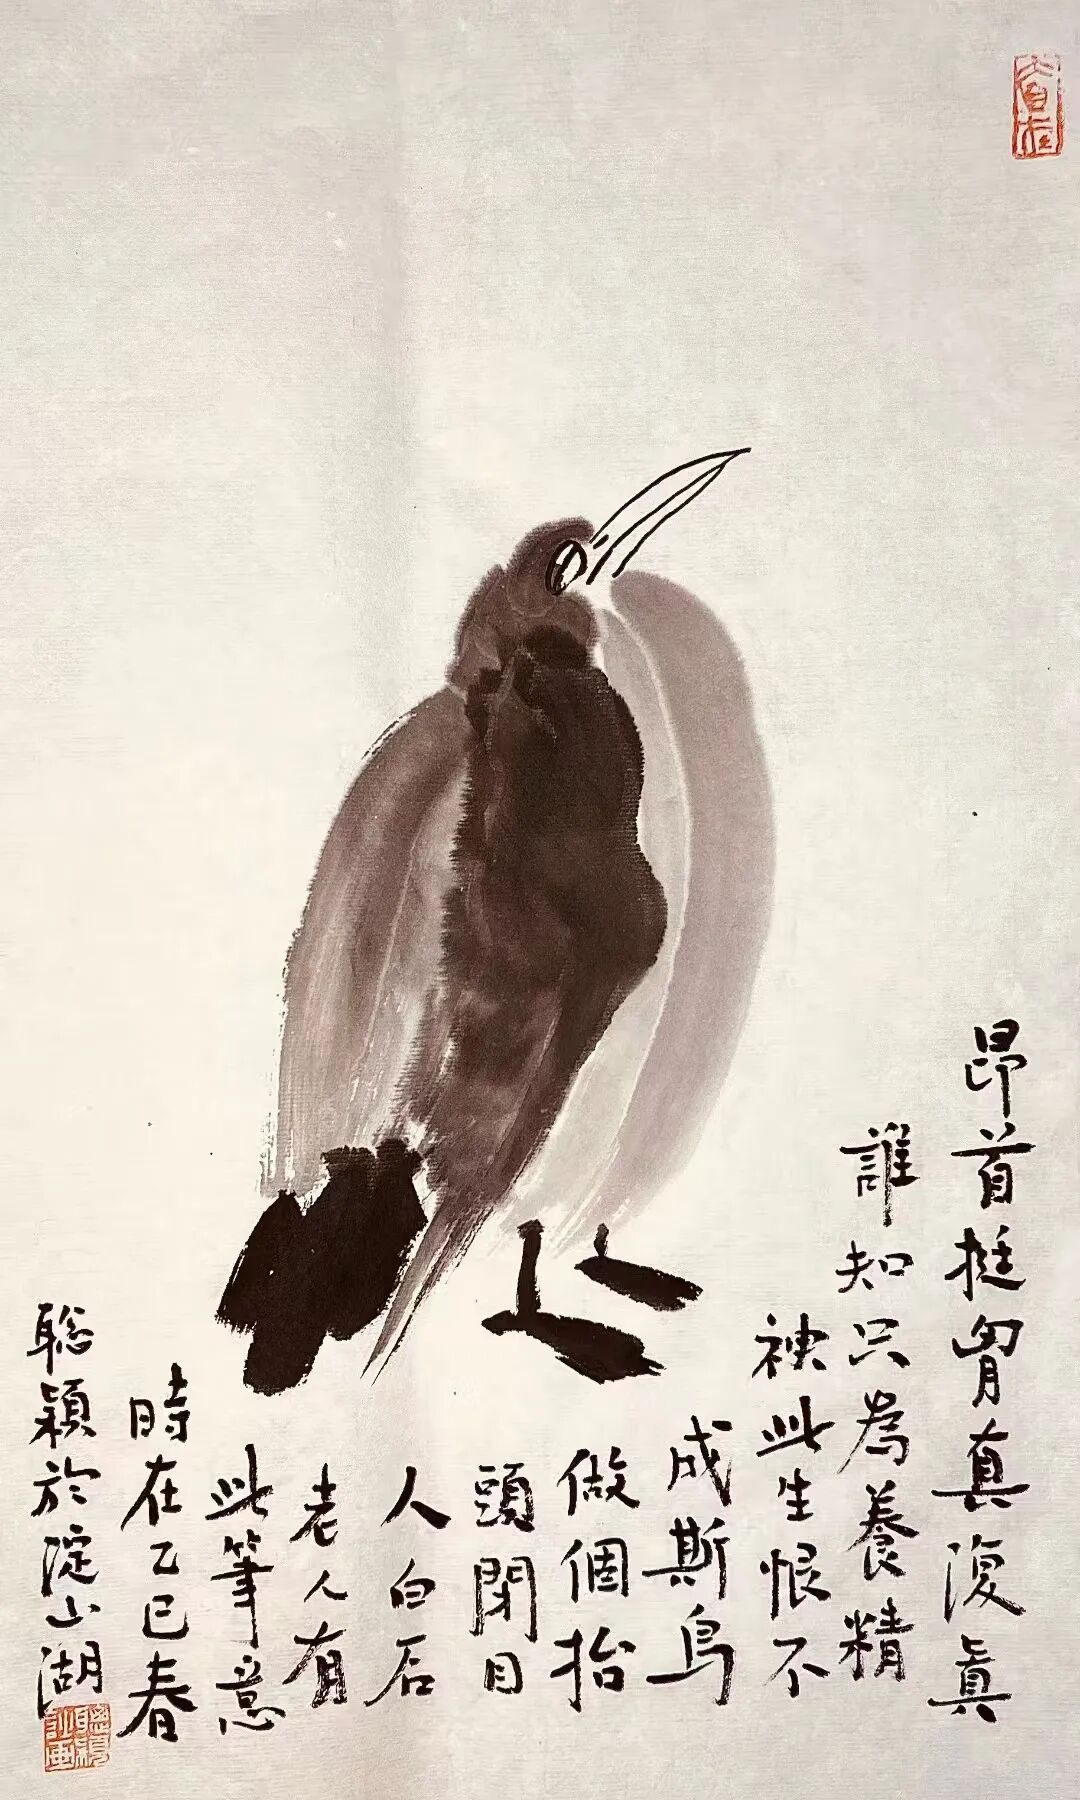 昂首挺胷真復真
誰知只為養精
祌此生恨不
成斯鳥
做個抬
頭閉目
人白石
老人有
此筆意
時在乙巳春
聡穎於淀山湖